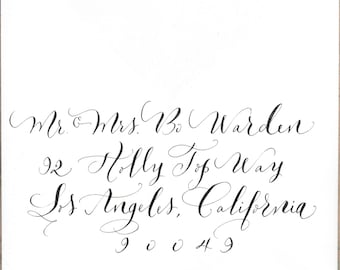 Mr. & Mrs. Bo Warden
92 Holly Top Way
Los Angeles, California
90049